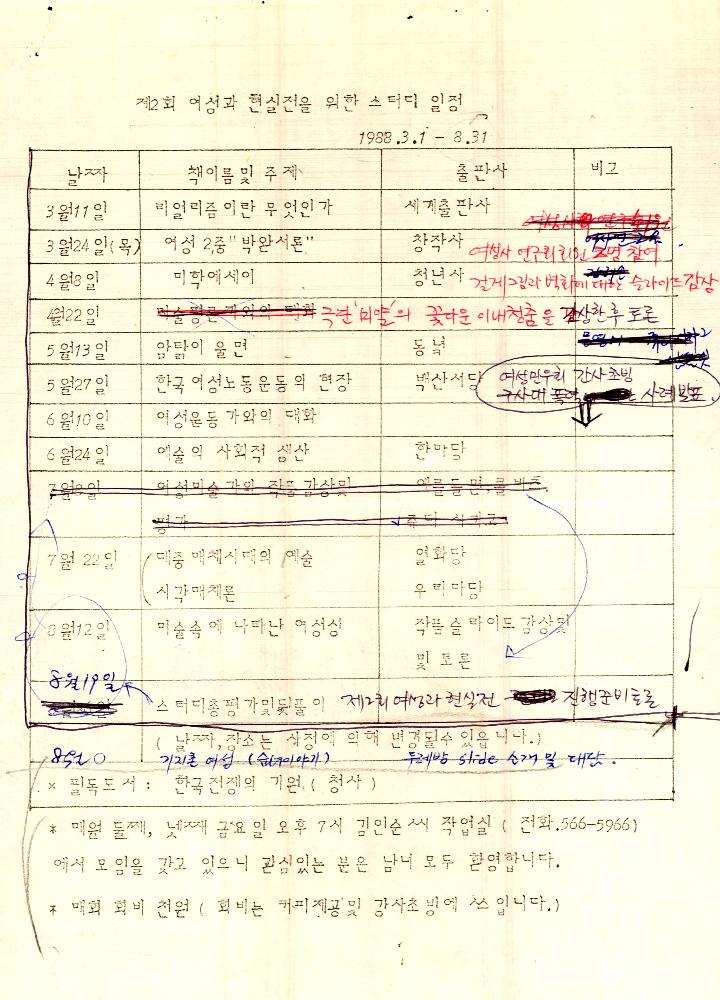 제2회 여성과 현실전을 위한 스터디 일정
1988.3.1 - 8.31
날짜 책이름및 주제 출판사 비고
3월11일 리얼리즘이란 무엇인가 세계출판사
3월24일(목) 여성 2,중"박완서론" 창작사
여성사 연구회 회원 2명 참여
4월8일 미학에세이 청년사
걸개그림과 벽화에 대한 슬라이드감상
4월22일 극단 '의 꽃다운 이내청춘을 감상한 후 토론
5월13일 암탉이 울면 동녘
5월27일 한국여성노동운동의 현장 백산서당
여성민우회 간사 초빙
구사대 폭력 사례발표
6월10일 여성운동가와의 대화
6월24일 예술의 사회적 생산 한마당
7월8일 여성미술가와 작품감상및
평가
7월 22일 대중매체시대의 예술 열화당
시각매체론 우리마당
8월12일 미술속에 나타난 여성상 작품슬라이드감상및
및 토론
8월19일
스터디총평가및뒷풀이 제2회 여성과 현실전 진행준비토론
( 날짜,장소는 사정에 의해 변경될수 있읍니다.)
8월 기지촌 여성 ( ) 두레방 slide 소개 및 대담.
× 필독도서 : 한국전쟁의 기원 ( 청사 )
* 매월 둘째, 넷째 금요일 오후 7시 김인순씨 작업실 ( 전화.566-5966)
에서 모임을 갖고 있으니 관심있는 분은 남녀 모두 환영합니다.
* 매회 회비 천원 ( 회비는 커피제공및 강사초빙에 쓰입니다.)